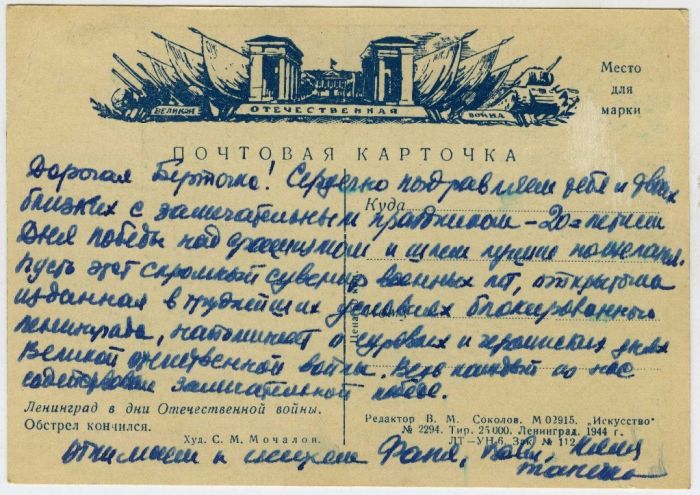 ВЕЛИКАЯ ОТЕЧЕСТВЕННАЯ ВОЙНА
Место
для
марки
ПОЧТОВАЯ КАРТОЧКА
Куда
Дорогая Берточка! Сердечно поздравляем тебя и твоих
близких с замечательным праздником – 20=летием
Дня победы над фашизмом и шлем лучшие пожелания.
Пусть этот скромный сувенир военных лет, открытка
изданная в труднейших условиях блокированного
Ленинграда, напоминает о суровых и героических днях
Великой отечественной войны. Ведь каждый из нас
содействовал замечательной победе.
Ленинград в дни Отечественной войны.
Обстрел кончился.
Худ. С. М. Мочалов.
Редактор В. М. Соколов. М 02915. „Искусство"
№ 2294. Тир. 25 000. Ленинград. 1944 г.
ЛТ—УН-6. Зак. № 112
Обнимаем и целуем Фаня,